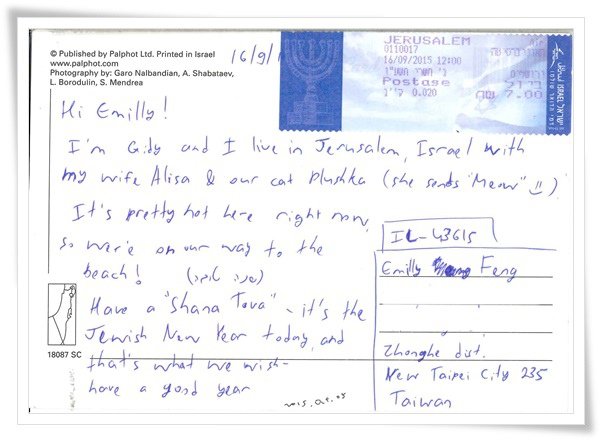 © Published by Palphot Ltd. Printed in Israel
www.palphot.com
Photography by: Garo Nalbandian, A. Shabataev,
L. Borodulin, S. Mendrea
16/9/1
JERUSALEM
0110017
16/09/2015 12:00
Postage
0.020
7.00
Hi Emilly!
I'm Gidy and I live in Jerusalem, Israel with
my wife Alisa & our cat Plushka (she sends "Meow" :))
It's pretty hot here right now,
so we're on our way to the
beach!
Have a "Shana Tova" - it's the
Jewish New Year today, and
that's what we wish-
have a good year
IL-43615
Emilly Feng
Zhonghe dist.
New Taipei City 235
Taiwan
18087 SC